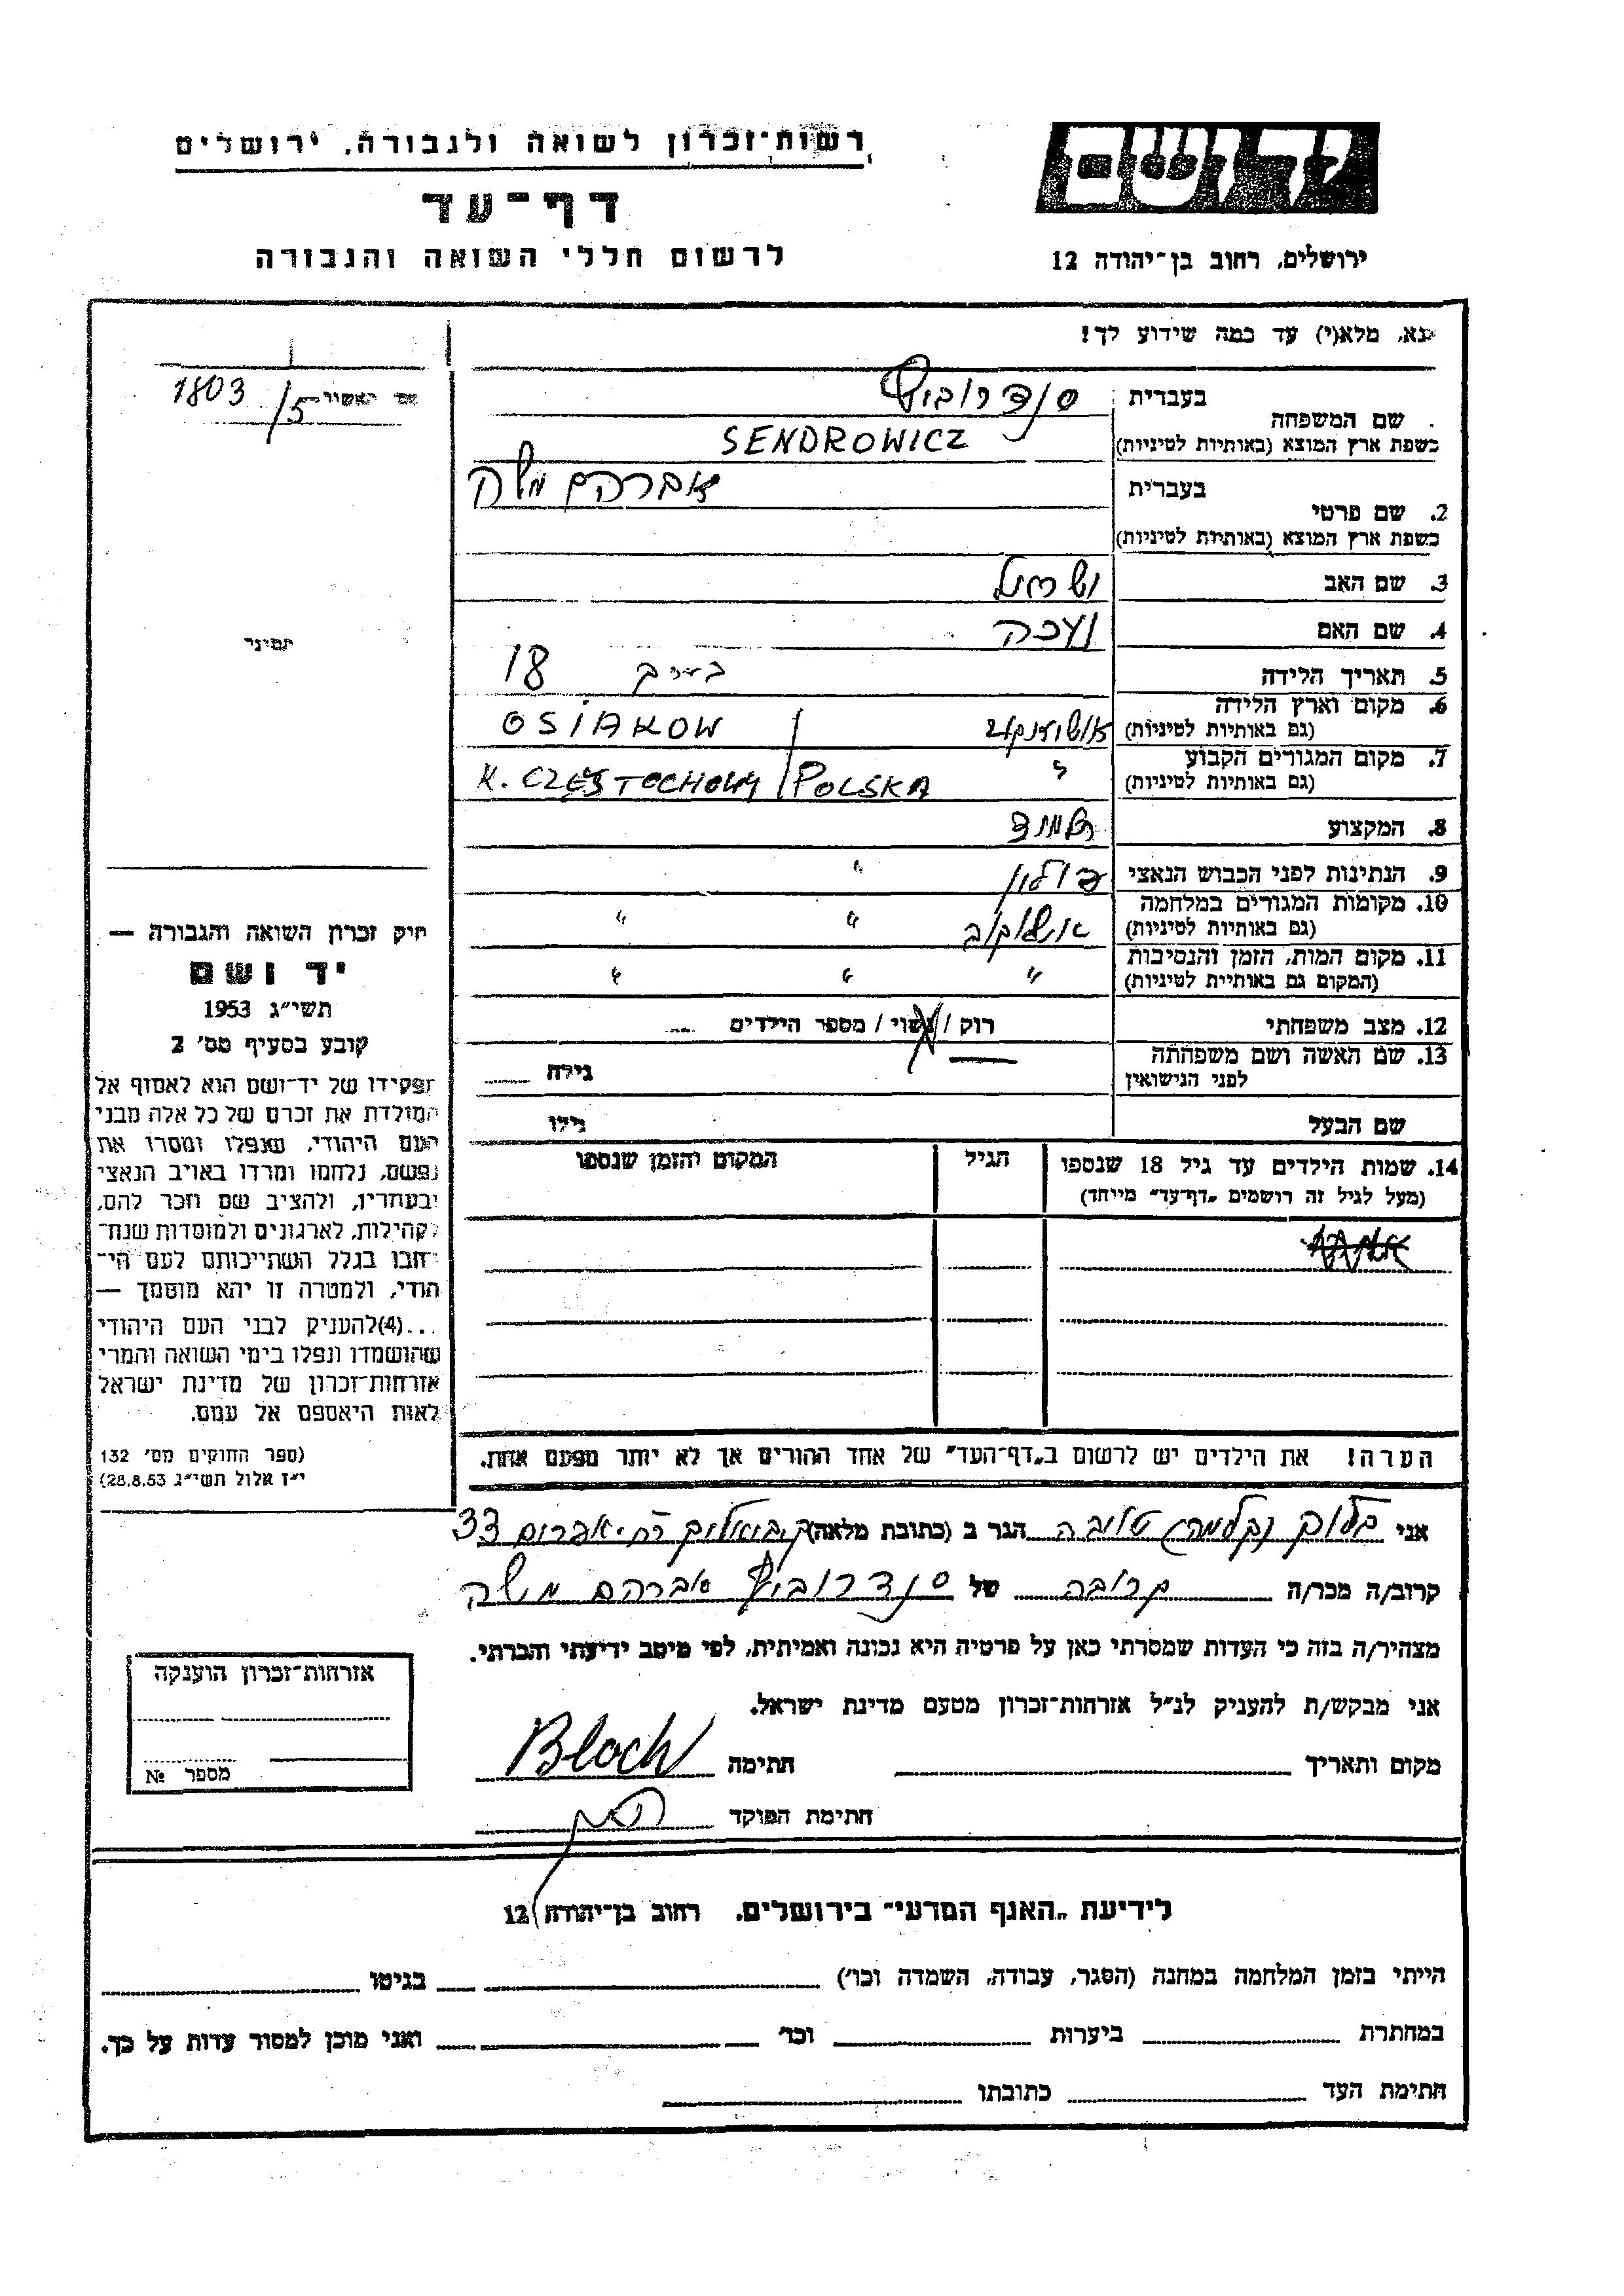 רשות־זכרון לשואה ולגבורה, ירושלים
יד ושם
דף־עד
לרשום חללי השואה והגבורה
ירושלים, רחוב בן־יהודה 12
נא, מלא(י) עד כמה שידוע לך!
1803/5
שם המשפחה
בעברית סנדרוביץ
בשפת ארץ המוצא (באותיות לטיניות) SENDROWICZ
2. שם פרטי
בעברית אברהם משה
בשפת ארץ המוצא (באותיות לטיניות)
3. שם האב ישראל
4. שם האם
5. תאריך הלידה 18
6. מקום וארץ הלידה OSIAKOW
(גם באותיות לטיניות)
7. מקום המגורים הקבוע K. CZĘSTOCHOWY / POLSKA
(גם באותיות לטיניות)
8. המקצוע
9. הנתינות לפני הכבוש הנאצי פולין "
10. מקומות המגורים במלחמה " "
(גם באותיות לטיניות)
11. מקום המות, הזמן והנסיבות " " "
(המקום גם באותיית לטיניות)
12. מצב משפחתי רוק / נשוי / מספר הילדים
13. שם האשה ושם משפחתה
לפני הנישואין גילה
שם הבעל גילו
14. שמות הילדים עד גיל 18 שנספו הגיל המקום והזמן שנספו
(מעל לגיל זה רושמים „דף־עד" מייוחד)
הערה! את הילדים יש לרשום ב„דף־העד" של אחד ההורים אך לא יותר מפעם אחת.
תמיני
חוק זכרון השואה והגבורה —
יד ושם
תשי״ג 1953
קובע בסעיף מס׳ 2
תפקידו של יד־ושם הוא לאסוף אל
המולדת את זכרם של כל אלה מבני
העם היהודי, שנפלו ומסרו את
נפשם, נלחמו ומרדו באויב הנאצי
ובעוזריו, ולהציב שם וזכר להם,
לקהילות, לארגונים ולמוסדות שנח־
רבו בגלל השתייכותם לעם הי־
הודי, ולמטרה זו יהא מוסמך —
...(4)להעניק לבני העם היהודי
שהושמדו ונפלו בימי השואה והמרי
אזרחות־זכרון של מדינת ישראל
לאות היאספם אל עמם.
(ספר החוקים מס׳ 132
י״ז אלול תשי״ג 28.8.53)
אני בלוך טובה הגר ב (כתובת מלאה) 33
קרוב/ה מכר/ה קרובה של סנדרוביץ אברהם משה
מצהיר/ה בזה כי העדות שמסרתי כאן על פרטיה היא נכונה ואמיתית, לפי מיטב ידיעתי והכרתי.
אני מבקש/ת להעניק לנ״ל אזרחות־זכרון מטעם מדינת ישראל.
מקום ותאריך חתימה Bloch
חתימת הפוקד
אזרחות־זכרון הוענקה
מספר №
לידיעת „האגף המדעי" בירושלים, רחוב בן־יהודה 12
הייתי בזמן המלחמה במחנה (הסגר, עבודה, השמדה וכו׳) בגיטו
במחתרת ביערות וכו׳ ואני מוכן למסור עדות על כך.
חתימת העד כתובתו